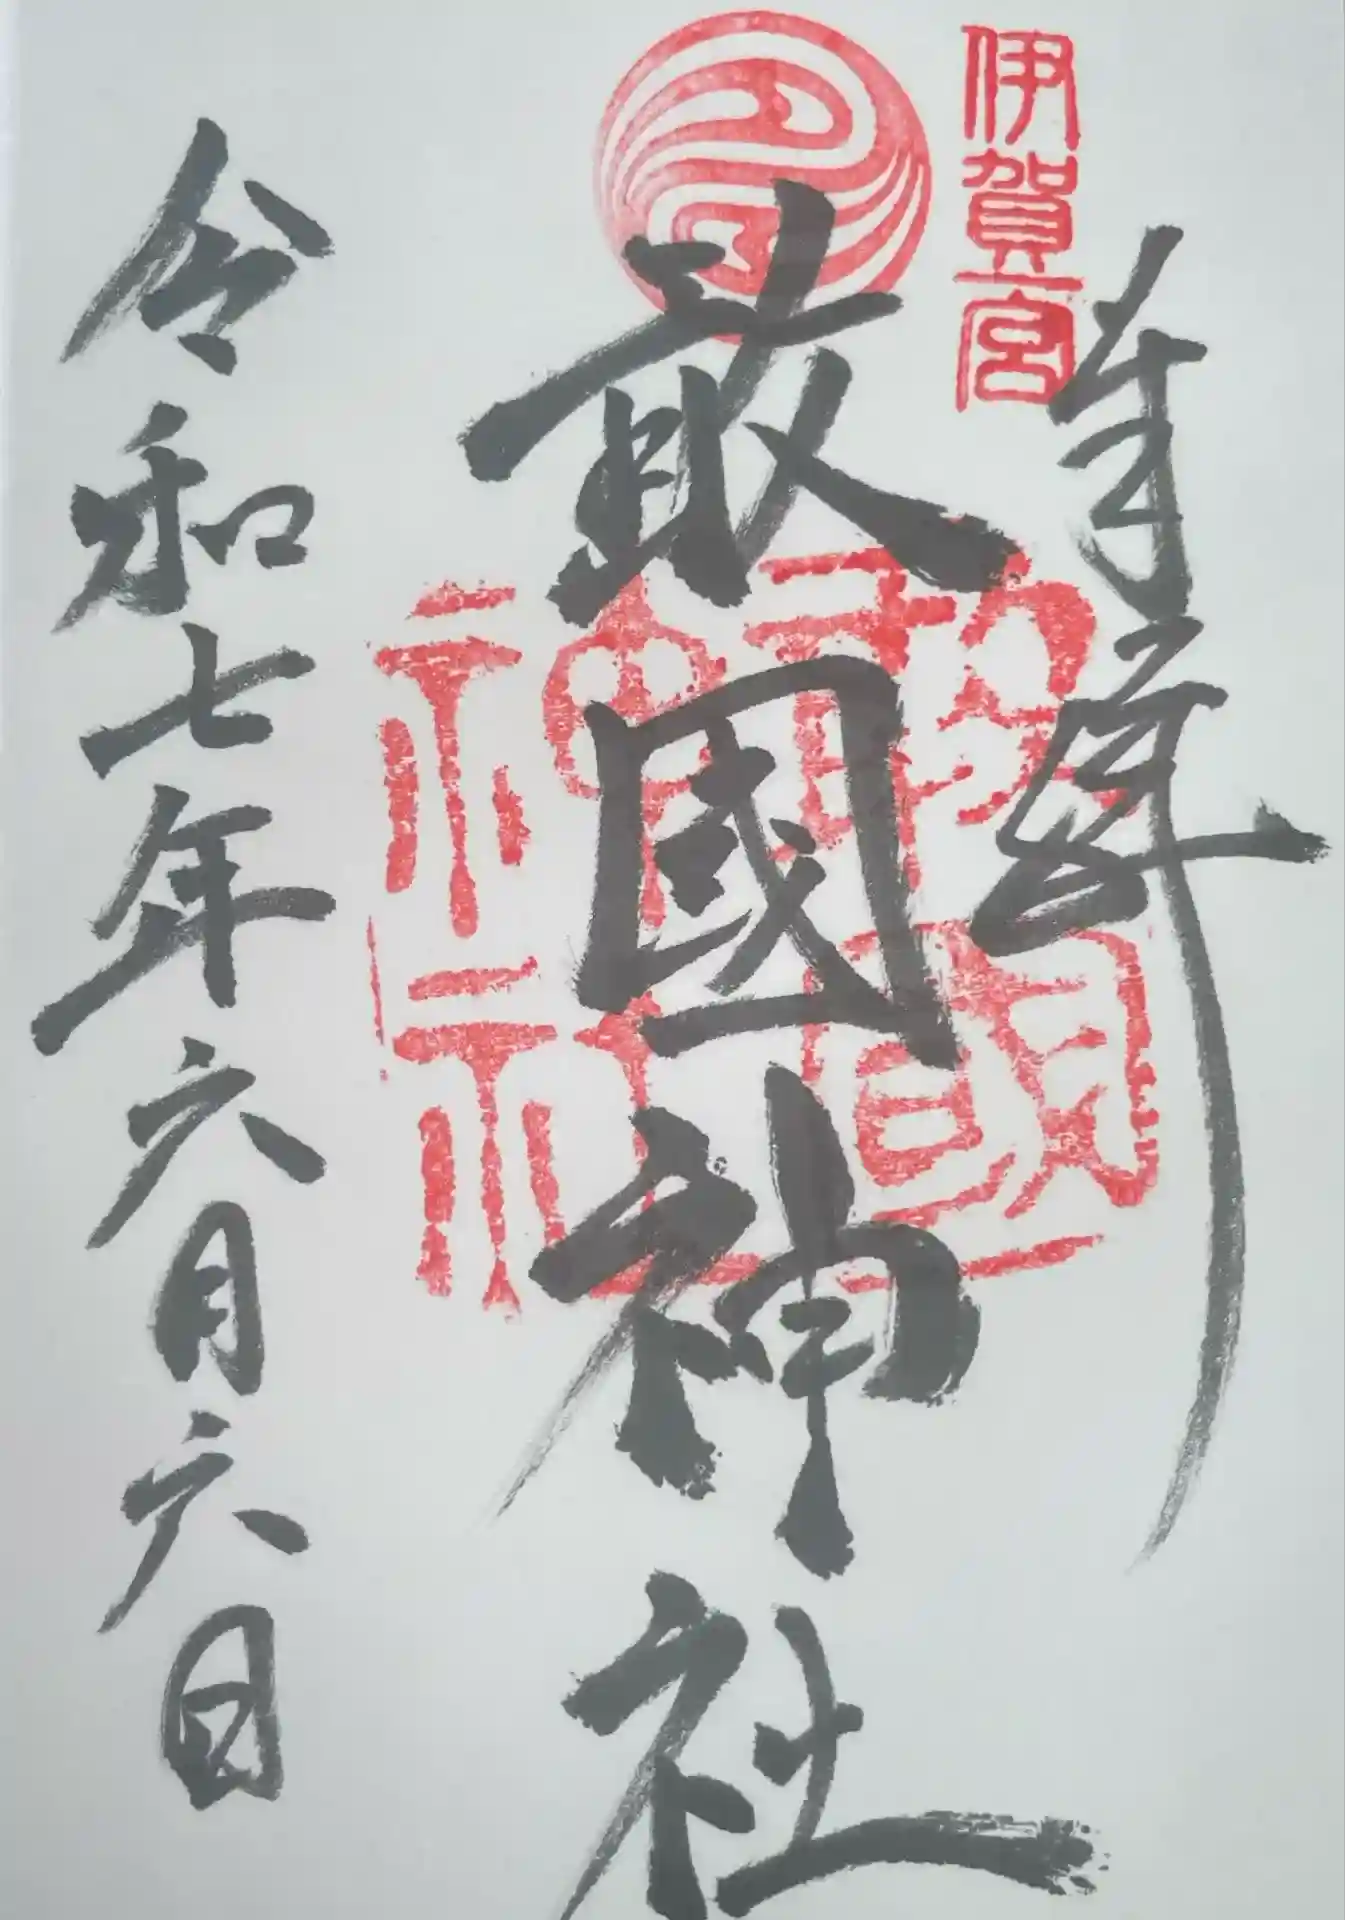 伊賀一宮
奉拝
敢國神社
敢國神社
令和七年六月六日